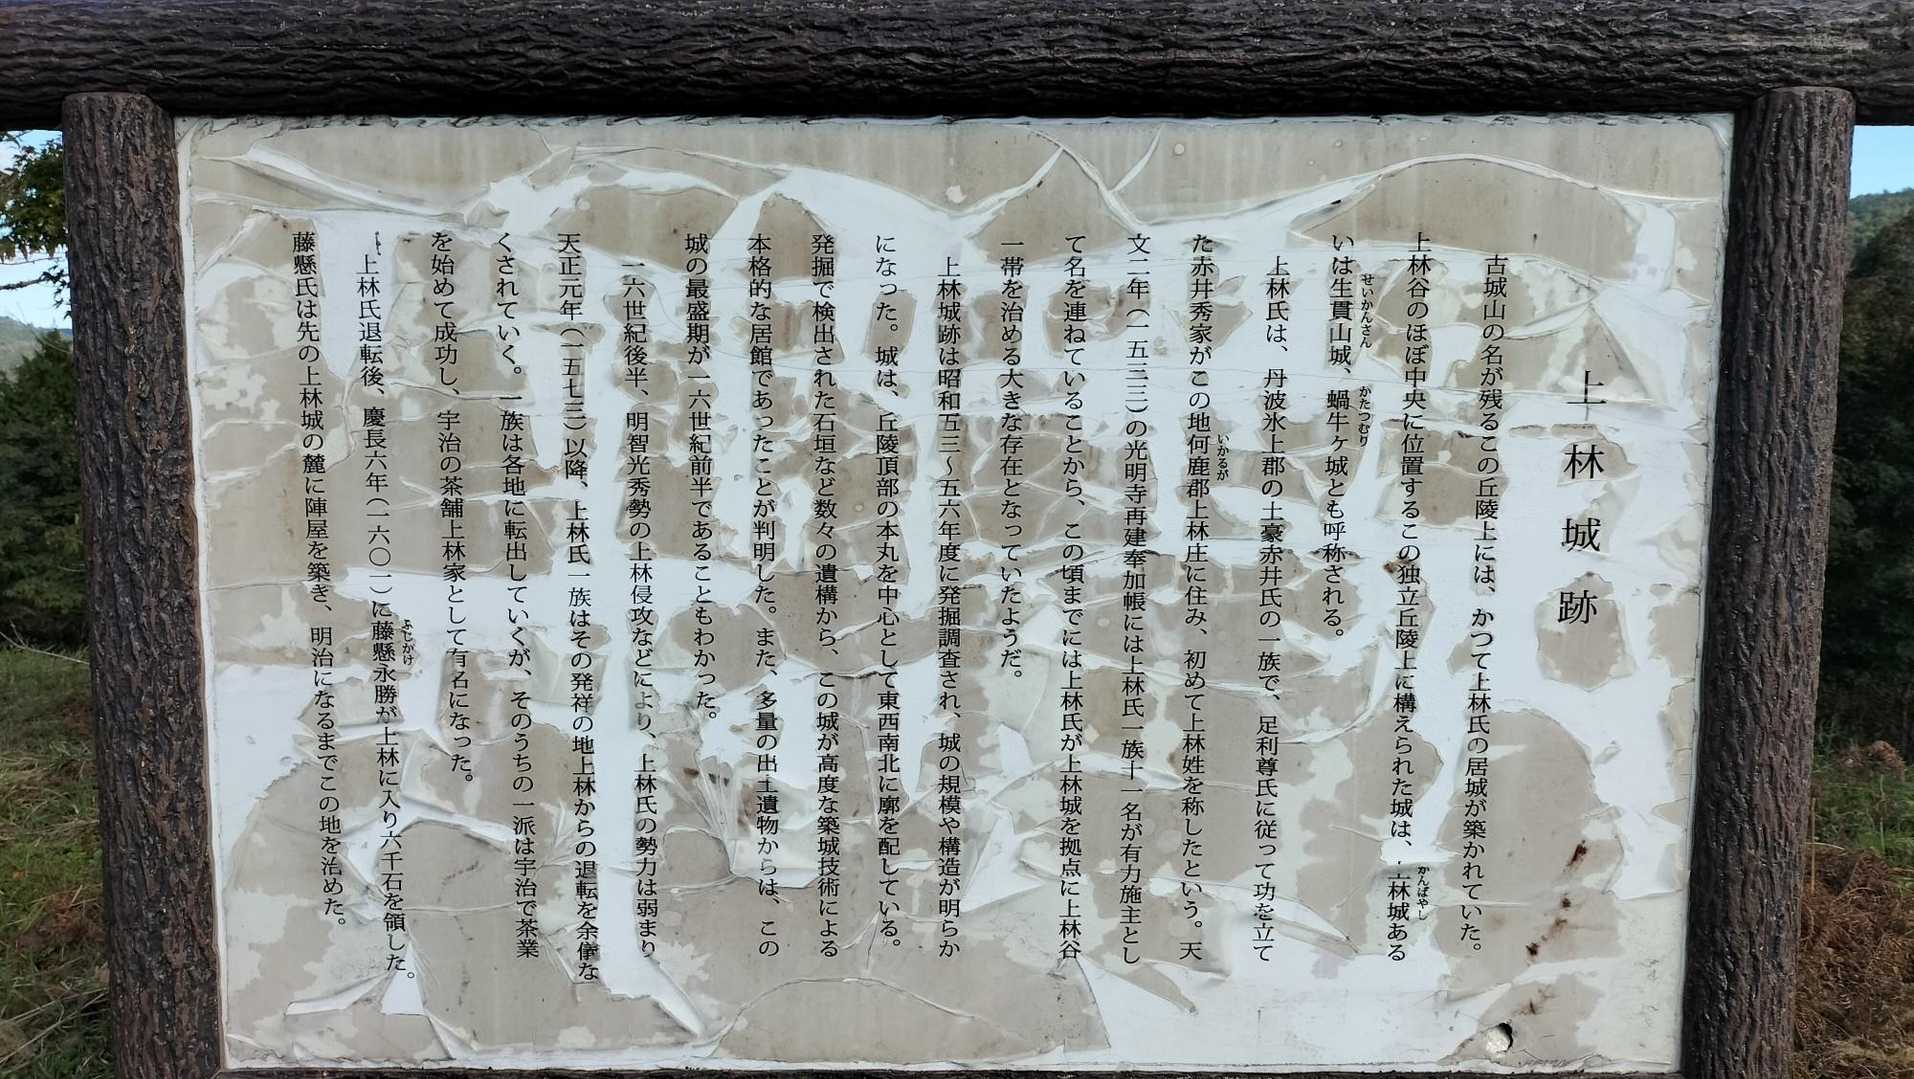 上林城跡
古城山の名が残るこの丘陵上には、かつて上林氏の居城が築かれていた。
上林谷のほぼ中央に位置するこの独立丘陵上に構えられた城は、上林城ある
かんばやし
いは生貫山城、蝸牛ヶ城とも呼称される。
せいかんさん
かたつむり
上林氏は、丹波氷上郡の土豪赤井氏の一族で、足利尊氏に従って功を立て
た赤井秀家がこの地何鹿郡上林庄に住み、初めて上林姓を称したという。天
いかるが
文二年（一五三三）の光明寺再建奉加帳には上林氏一族十一名が有力施主とし
て名を連ねていることから、この頃までには上林氏が上林城を拠点に上林谷
一帯を治める大きな存在となっていたようだ。
上林城跡は昭和五三～五六年度に発掘調査され、城の規模や構造が明らか
になった。城は、丘陵頂部の本丸を中心として東西南北に廓を配している。
発掘で検出された石垣など数々の遺構から、この城が高度な築城技術による
本格的な居館であったことが判明した。また、多量の出土遺物からは、この
城の最盛期が一六世紀前半であることもわかった。
一六世紀後半、明智光秀勢の上林侵攻などにより、上林氏の勢力は弱まり
天正元年（一五七三）以降、上林氏一族はその発祥の地上林からの退転を余儀な
くされていく。一族は各地に転出していくが、そのうちの一派は宇治で茶業
を始めて成功し、宇治の茶舗上林家として有名になった。
上林氏退転後、慶長六年（一六〇一）に藤懸永勝が上林に入り六千石を領した。
ふじがけ
藤懸氏は先の上林城の麓に陣屋を築き、明治になるまでこの地を治めた。